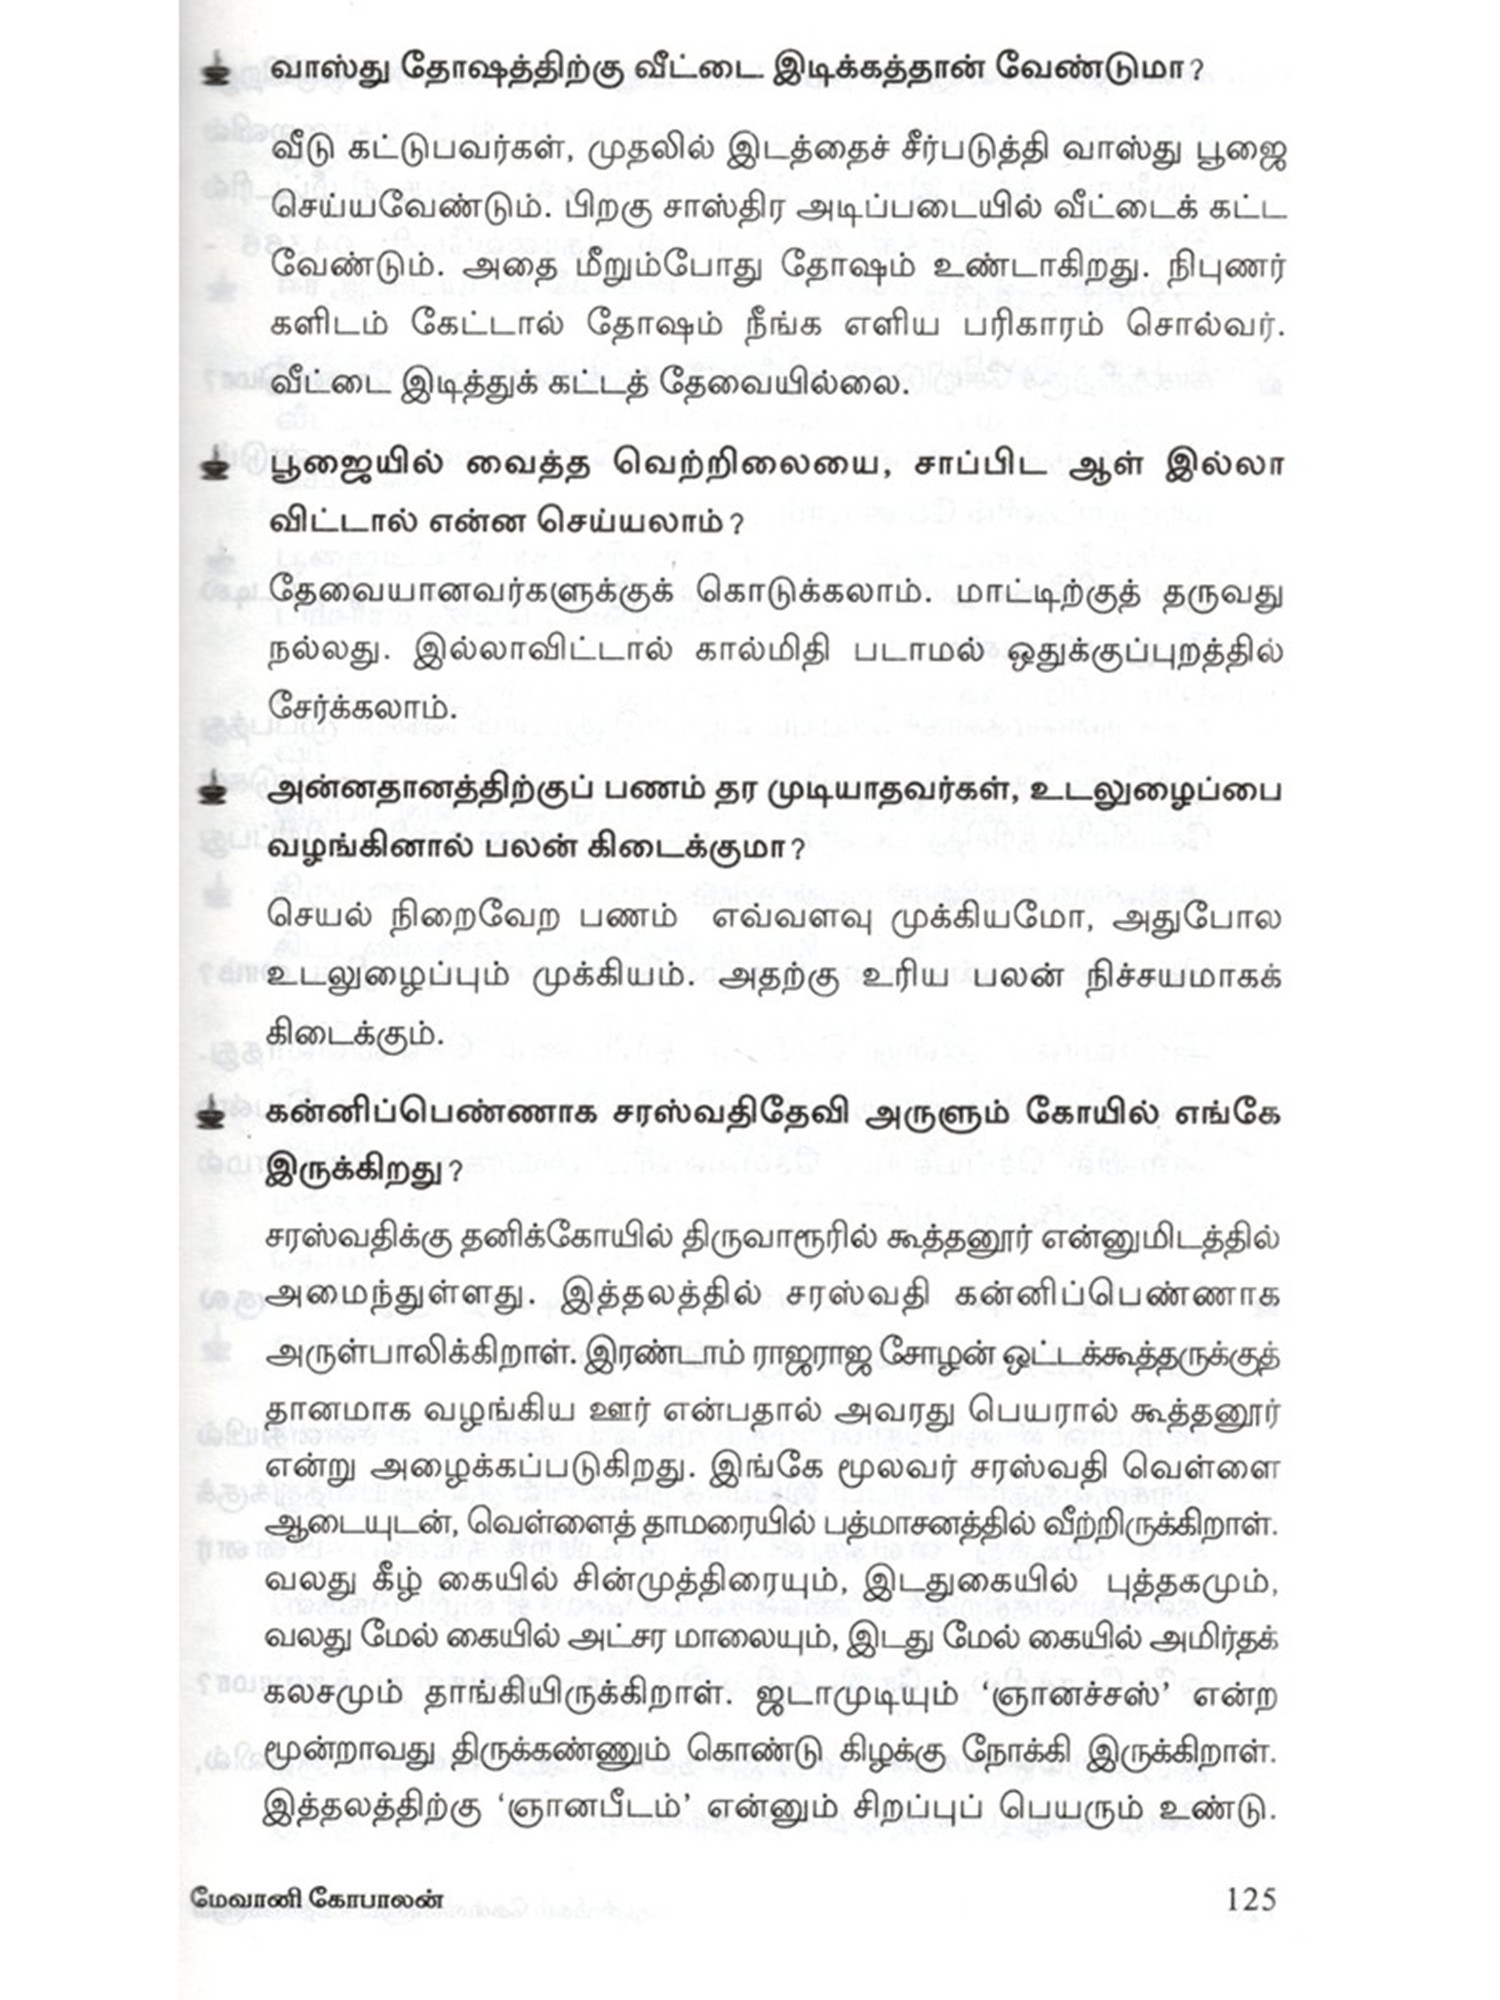 வாஸ்து தோஷத்திற்கு வீட்டை இடிக்கத்தான் வேண்டுமா?
வீடு கட்டுபவர்கள், முதலில் இடத்தைச் சீர்படுத்தி வாஸ்து பூஜை
செய்யவேண்டும். பிறகு சாஸ்திர அடிப்படையில் வீட்டைக் கட்ட
வேண்டும். அதை மீறும்போது தோஷம் உண்டாகிறது. நிபுணர்
களிடம் கேட்டால் தோஷம் நீங்க எளிய பரிகாரம் சொல்வர்.
வீட்டை இடித்துக் கட்டத் தேவையில்லை.
பூஜையில் வைத்த வெற்றிலையை, சாப்பிட ஆள் இல்லா
விட்டால் என்ன செய்யலாம்?
தேவையானவர்களுக்குக் கொடுக்கலாம். மாட்டிற்குத் தருவது
நல்லது. இல்லாவிட்டால் கால்மிதி படாமல் ஒதுக்குப்புறத்தில்
சேர்க்கலாம்.
அன்னதானத்திற்குப் பணம் தர முடியாதவர்கள், உடலுழைப்பை
வழங்கினால் பலன் கிடைக்குமா?
செயல் நிறைவேற பணம் எவ்வளவு முக்கியமோ, அதுபோல
உடலுழைப்பும் முக்கியம். அதற்கு உரிய பலன் நிச்சயமாகக்
கிடைக்கும்.
கன்னிப்பெண்ணாக சரஸ்வதிதேவி அருளும் கோயில் எங்கே
இருக்கிறது?
சரஸ்வதிக்கு தனிக்கோயில் திருவாரூரில் கூத்தனூர் என்னுமிடத்தில்
அமைந்துள்ளது. இத்தலத்தில் சரஸ்வதி கன்னிப்பெண்ணாக
அருள்பாலிக்கிறாள். இரண்டாம் ராஜராஜ சோழன் ஒட்டக்கூத்தருக்குத்
தானமாக வழங்கிய ஊர் என்பதால் அவரது பெயரால் கூத்தனூர்
என்று அழைக்கப்படுகிறது. இங்கே மூலவர் சரஸ்வதி வெள்ளை
ஆடையுடன், வெள்ளைத் தாமரையில் பத்மாசனத்தில் வீற்றிருக்கிறாள்.
வலது கீழ் கையில் சின்முத்திரையும், இடதுகையில் புத்தகமும்,
வலது மேல் கையில் அட்சர மாலையும், இடது மேல் கையில் அமிர்தக்
கலசமும் தாங்கியிருக்கிறாள். ஜடாமுடியும் ‘ஞானச்சஸ்’ என்ற
மூன்றாவது திருக்கண்ணும் கொண்டு கிழக்கு நோக்கி இருக்கிறாள்.
இத்தலத்திற்கு ‘ஞானபீடம்’ என்னும் சிறப்புப் பெயரும் உண்டு.
மேவானி கோபாலன்
125